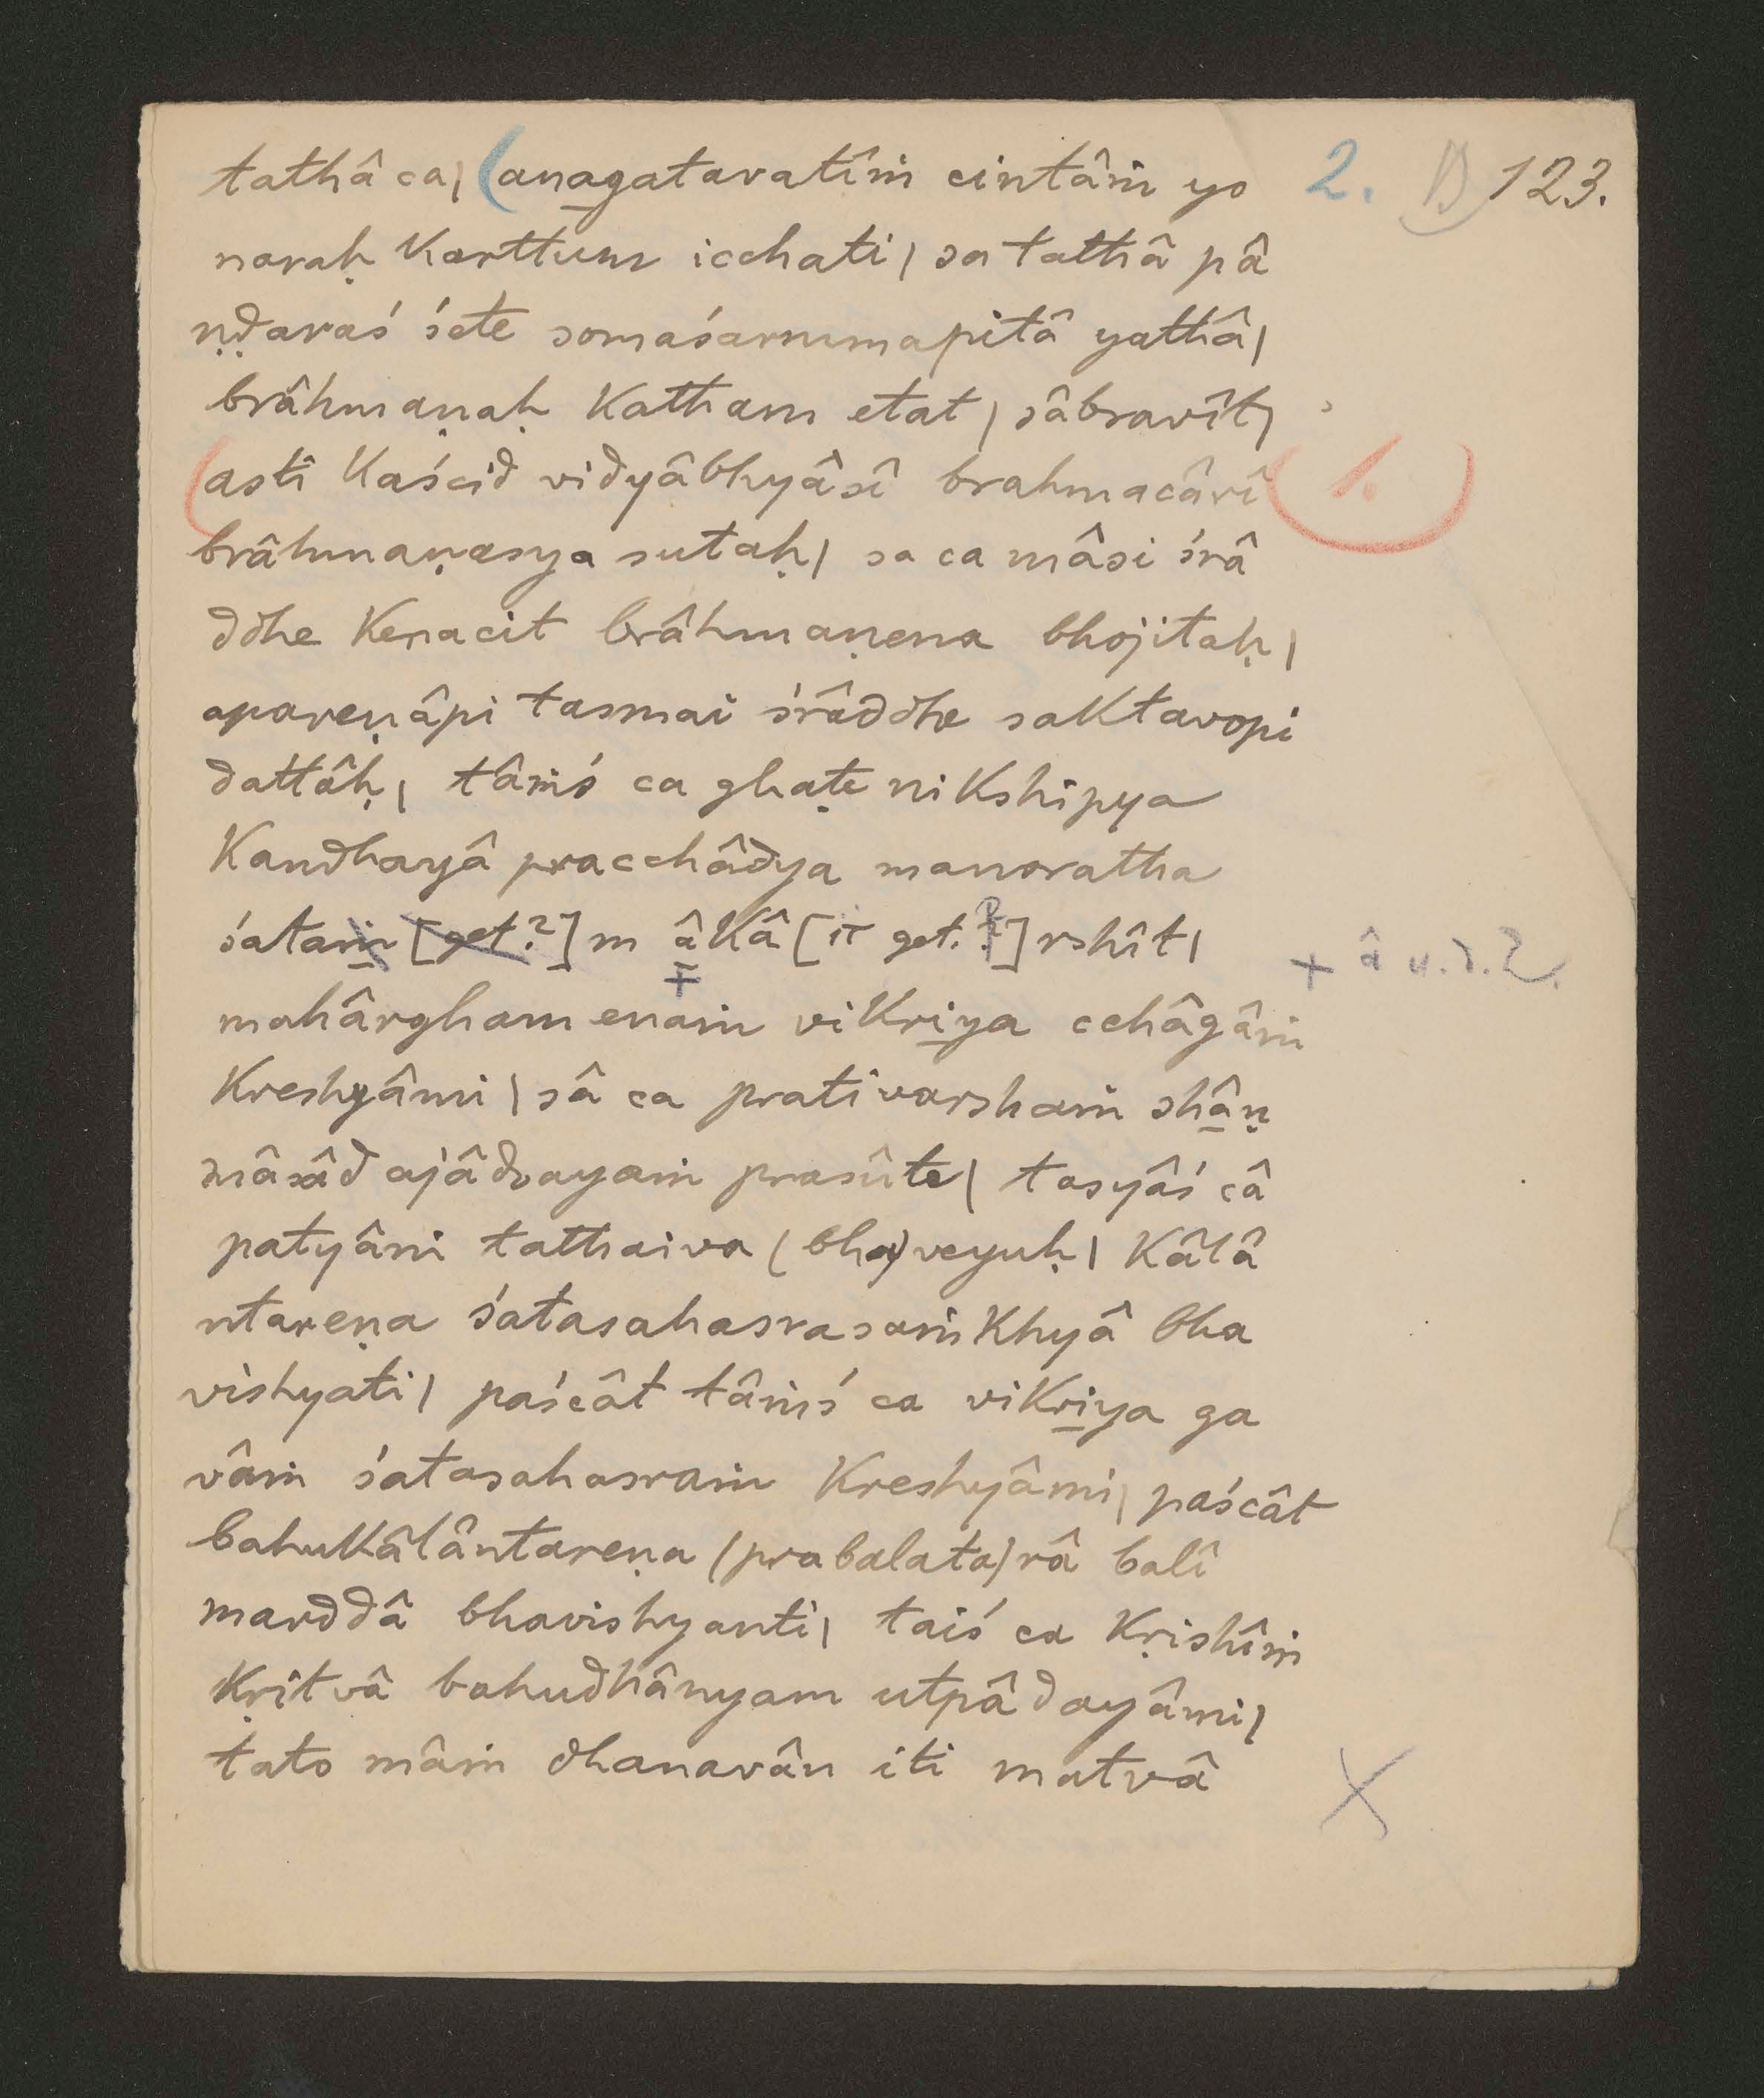 tathâ ca | (anagatavatîṁ cintâṁ yo 2. D 123.
naraḥ karttum icchati | sa tathâ pâ
ṇḍavaś śete somaśarmmapitâ yathâ |
brâhmaṇaḥ katham etat | sâbravît |
(asti kaścid vidyâbhyâsî brahmacârî 1.
brâhmaṇasya sutaḥ | sa ca mâsi śrâ
ddhe kenacit brâhmaṇena bhojitaḥ |
apareṇâpi tasmai śrâddhe saktavopi
dattâḥ | tâṁś ca ghaṭe nikshipya
kandhayâ pracchâdya manoratha
śataṁ [get?] m âkâ [it get.?] rshît | + â u.d.2.
mahârgham enaṁ vikriya cchâgâṁ
kreshyâmi | sâ ca prativarshaṁ shâṇ
mâsâd ajâdvayaṁ prasûte | tasyâś câ
patyâni tathaiva (bha)veyuḥ | kâlâ
ntareṇa śatasahasrasaṁkhyâ bha
vishyati | paścât tâṁś ca vikriya ga
vâṁ śatasahasraṁ kreshyâmi | paścât
bahukâlântareṇa (prabalata)râ balî
marddâ bhavishyanti | taiś ca kṛishîṁ
kṛitvâ bahudhânyam utpâdayâmi |
tato mâṁ dhanavân iti matvâ X